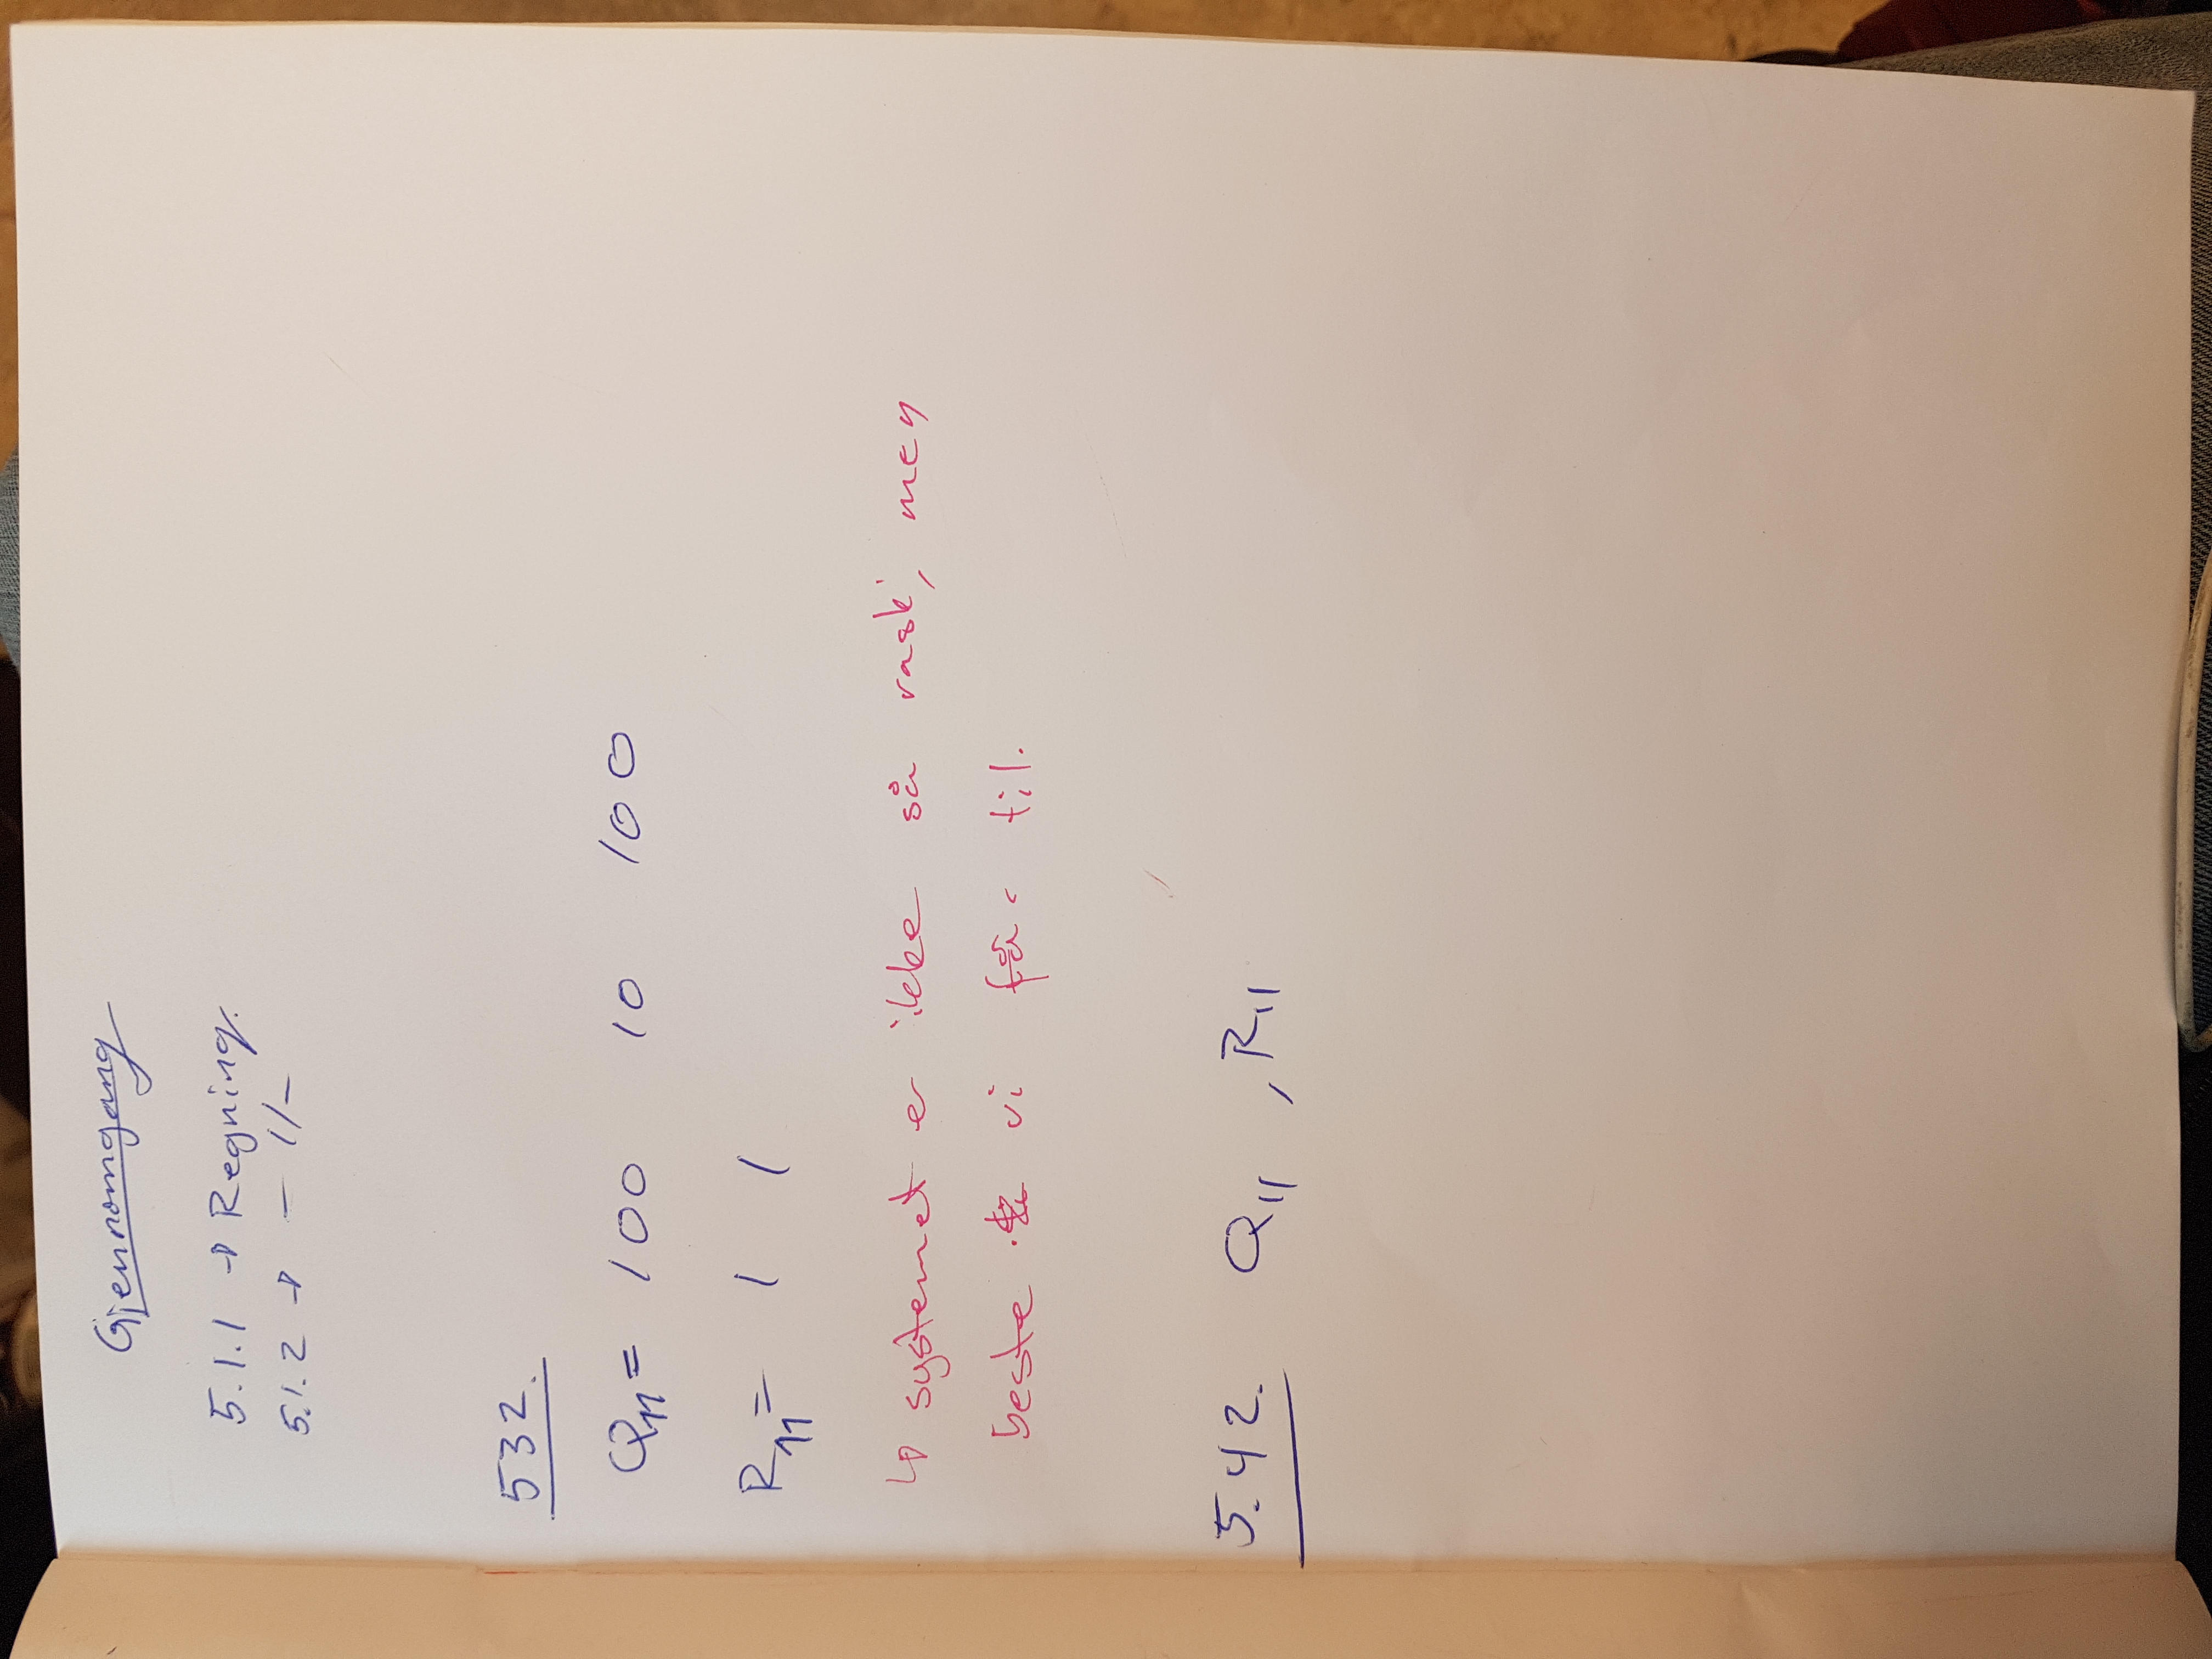 Gjennomgang
5.1.1 → Regning.
5.1.2 → - 1/-
532.
Q11 = 100 10 100
R11 = 1 1
↳ systemet er ikke så rask, men
beste vi får til.
5.42. Q11 , R11